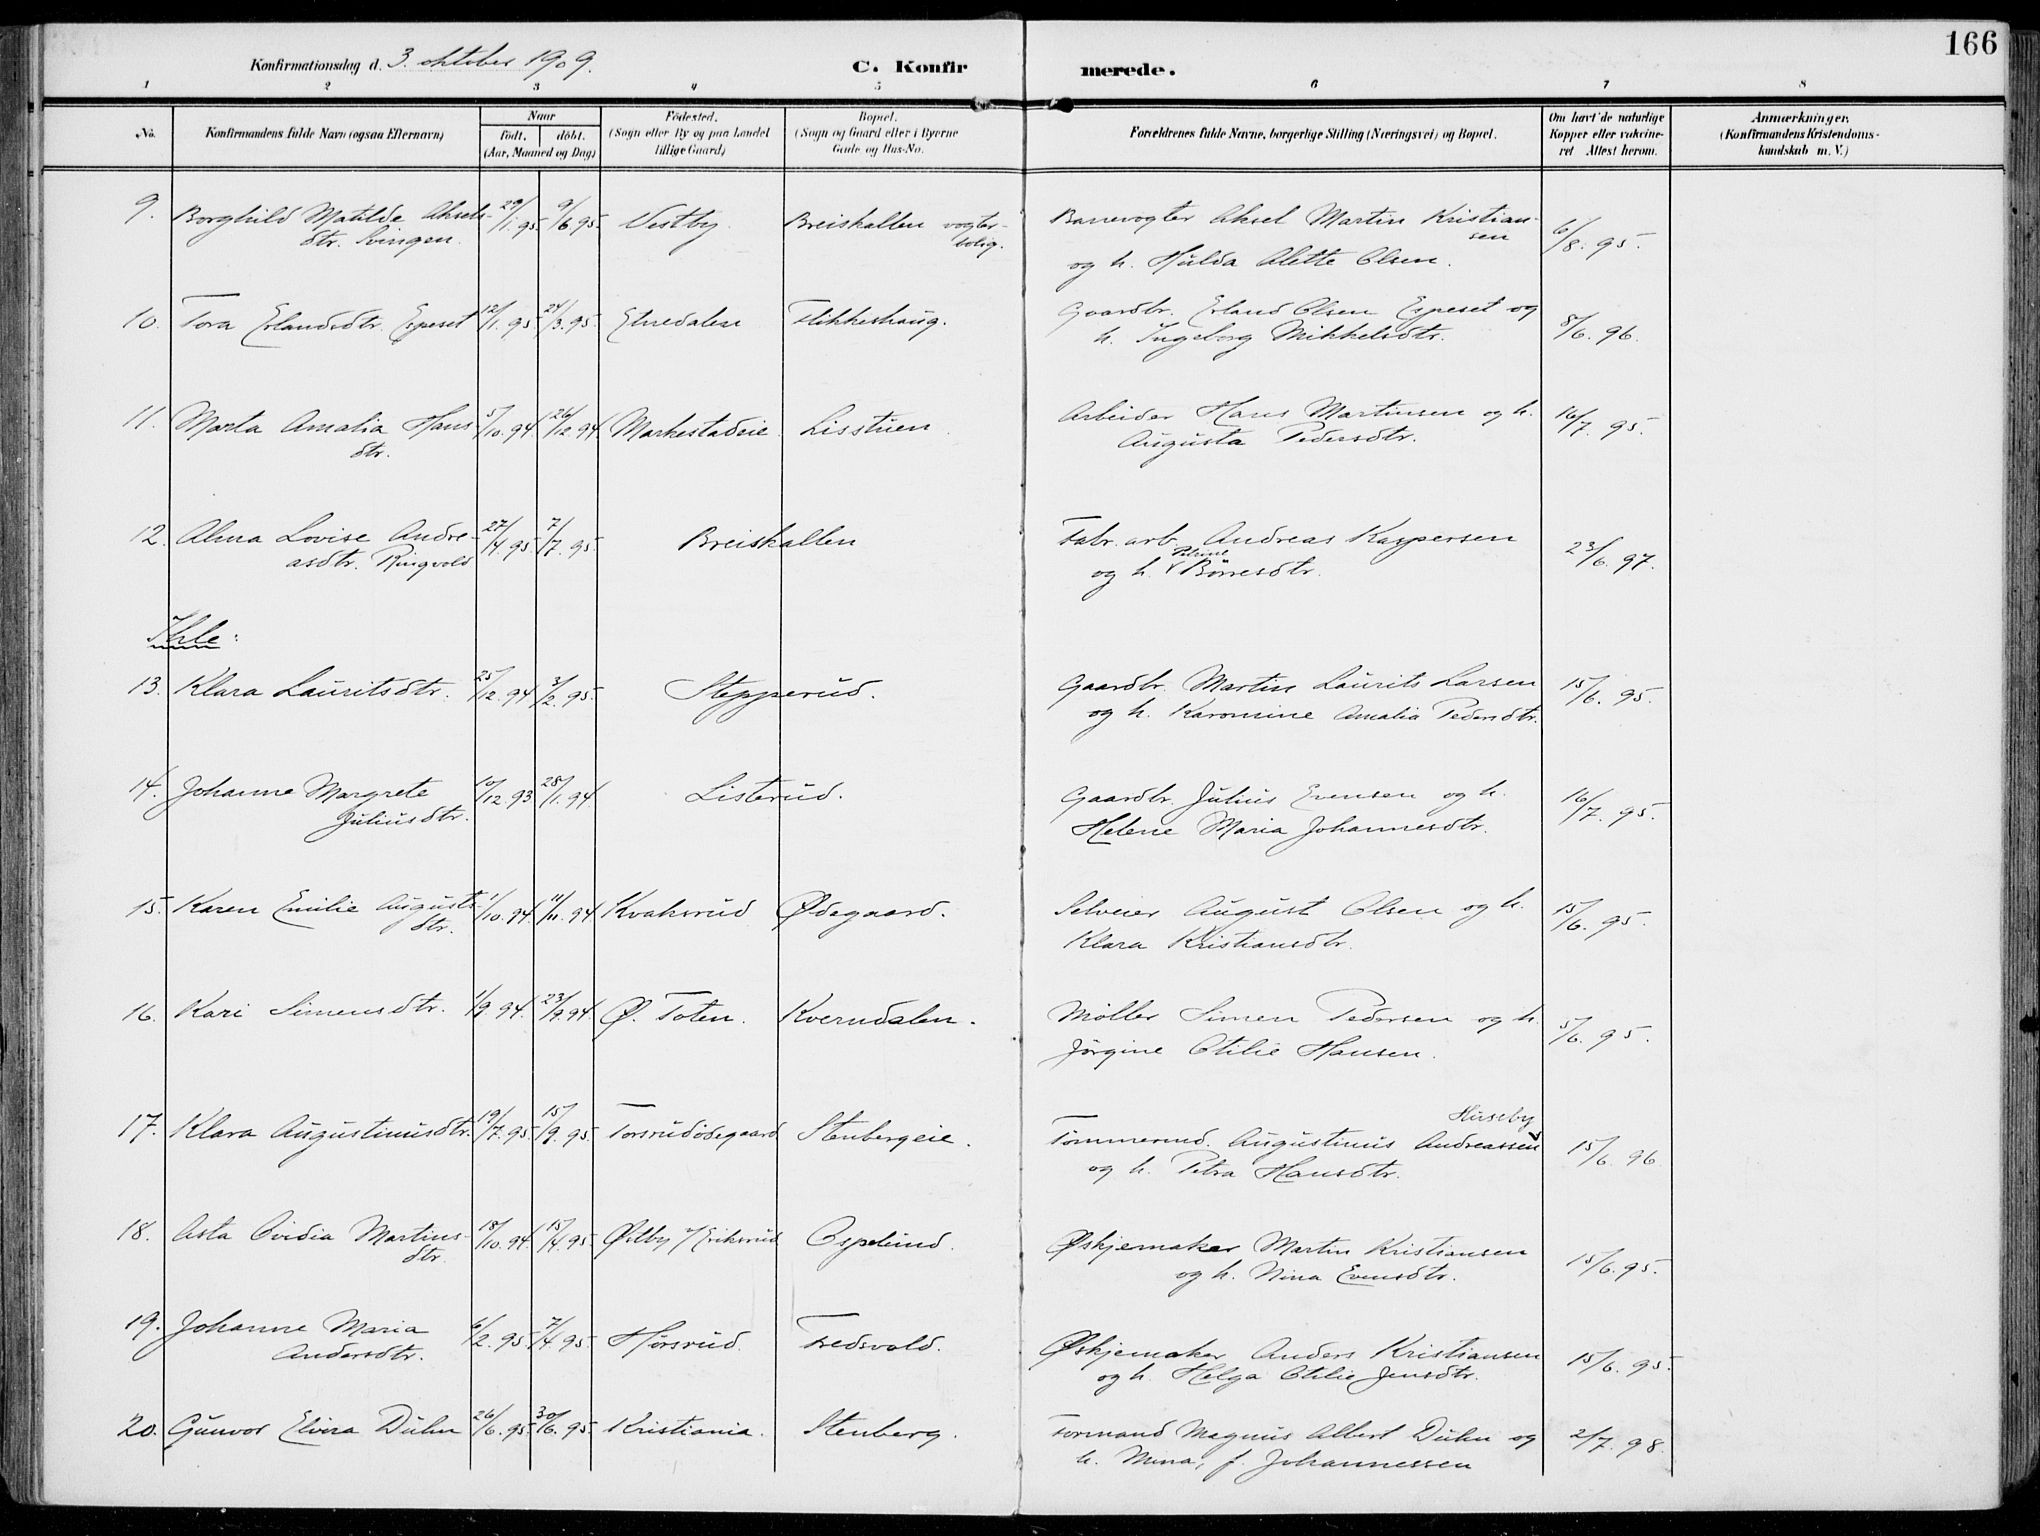 166
Konfirmationsdag d. 3. oktober 1909.
C. Konfirmerede.
1 2 3 4 5 6 7 8
No.
Konfirmandens fulde Navn (ogsaa Efternavn)
Naar
født. døbt.
(Aar, Maaned og Dag)
Fødested.
(Sogn eller By og paa Landet
tillige Gaard)
Bopæl.
(Sogn og Gaard eller i Byerne
Gade og Hus-No.
Forældrenes fulde Navne, borgerlige Stilling (Næringsvei) og Bopæl.
Om havt de naturlige
Kopper eller vakcine-
ret Attest herom.
Anmærkninger.
(Konfirmandens Kristendoms-
kundskab m. V.)
9. Borghild Matilde Aksels- 29/1. 95. 9/6 95. Vestby. Breiskallen vogter- Banevogter Aksel Martin Kristian- 6/8. 95.
dtr. Svingen. bolig. sen
og h. Hulda Alette Olsen.
10. Tora Erlandsdtr. Espeset 12/1. 95. 24/3. 95. Etnedalen Flikkeshaug. Gaardbr. Erland Olsen Espeset og 8/6. 96.
h. Ingeborg Mikkelsdtr.
11. Marta Amalia Hans 5/10. 94. 26/12. 94. Markestadeie Lisstuen. Arbeider Hans Martinsen og h. 16/7. 95.
dtr. Augusta Pedersdtr.
12. Alma Lovise Andre- 27/4. 95. 7/7. 95. Breiskallen Fabr. arb. Andreas Kaspersen 23/6. 97.
asdtr. Ringvold Petrine
og h. Børresdtr.
Ihle:
13. Klara Lauritsdtr. 25/12. 94 3/2. 95. Stepperud. Gaardbr. Martin Laurits Larsen 15/6. 95.
og h. Karonsine Amalia Pedersdtr.
14. Johanne Margrete 10/12. 93 28/1. 94. Listerud. Gaardbr. Julius Evensen og h. 16/7. 95.
Juliusdtr. Helene Maria Johannesdtr.
15. Karen Emilie Augusts- 1/10. 94. 11/11. 94 Kvaksrud Ødegaard. Selveier August Olsen og h. 15/6. 95.
dtr. Klara Kristiansdtr.
16. Kari Simensdtr. 1/9 94. 23/9. 94. Ø. Toten. Kverndalen. Møller Simen Pedersen og h. 5/6. 95.
Jørgine Otilie Hansen.
17. Klara Augustinusdtr. 19/7. 95. 15/9. 95. Torsrudødegaard Stenbergeie. Hussby
Tømmermd. Augustinus Andreassen 15/6. 96.
og h. Petra Hansdtr.
18. Asta Ovidia Martins- 18/10. 94. 15/4. 95. Østby u/ Eriksrud Ospelund. Øskjemaker Martin Kristiansen 15/6. 95.
dtr. og h. Nina Evensdtr.
19. Johanne Maria 6/2. 95. 7/4. 95. Hørsrud. Fredsvold. Øskjemaker Anders Kristiansen 15/6. 95.
Andersdtr. og h. Helga Otilie Jensdtr.
20. Gunvor Elvira Duhn 26/6. 95. 30/6. 95. Kristiania. Stenberg. Formand Magnus Albert Duhn og 2/7. 98.
h. Mina, f. Johannessen